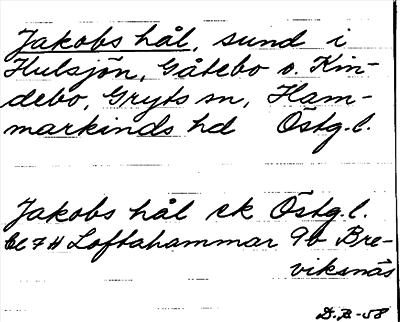 Jakobs hål, sund i
Hulsjön, Gåtebo o. Kin-
debo, Gryts sn, Ham-
markinds hd Östg.l.
Jakobs hål ek Östg.l.
7H Loftahammar 9b Bre-
viksnäs
D.B-58